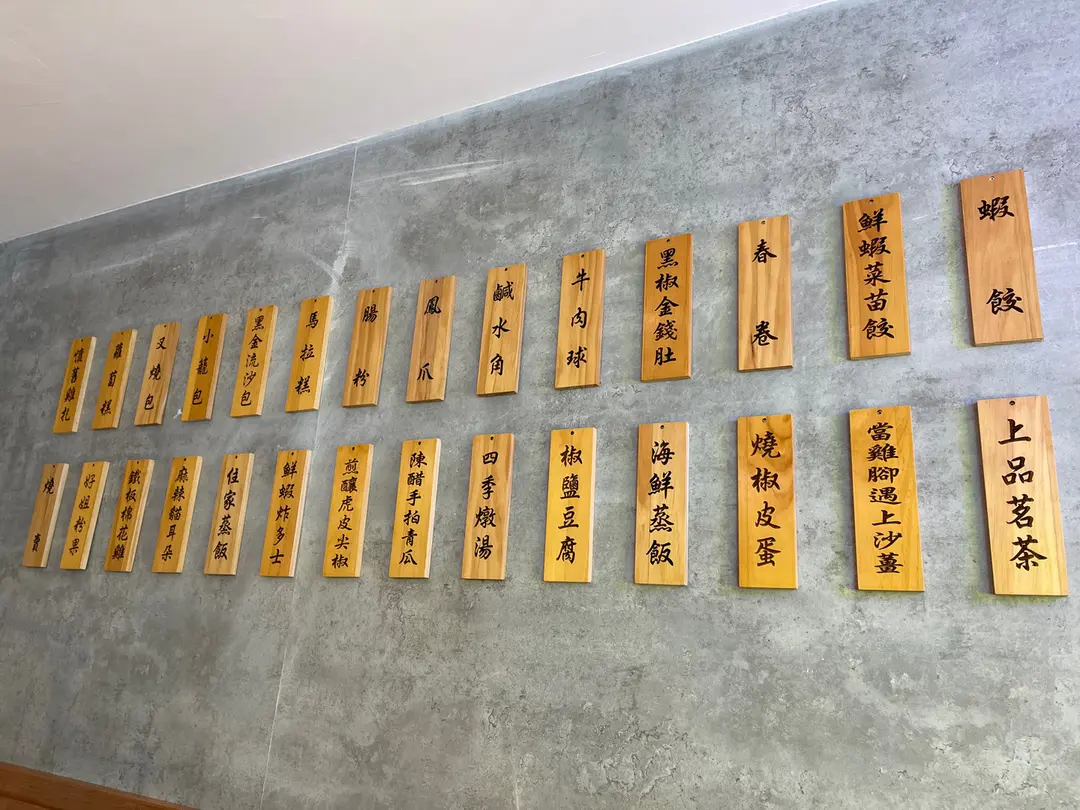 蝦餃
鮮蝦菜苗餃
春卷
黑椒金錢肚
牛肉球
鹹水角
鳳爪
腸粉
馬拉糕
黑金流沙包
小籠包
叉燒包
蘿蔔糕
懷舊雞扎
上品茗茶
當雞腳遇上沙薑
燒椒皮蛋
海鮮蒸飯
椒鹽豆腐
四季燉湯
陳醋手拍青瓜
煎釀虎皮尖椒
鮮蝦炸多士
住家蒸飯
麻辣貓耳朵
鐵板棉花雞
好姐粉果
燒賣